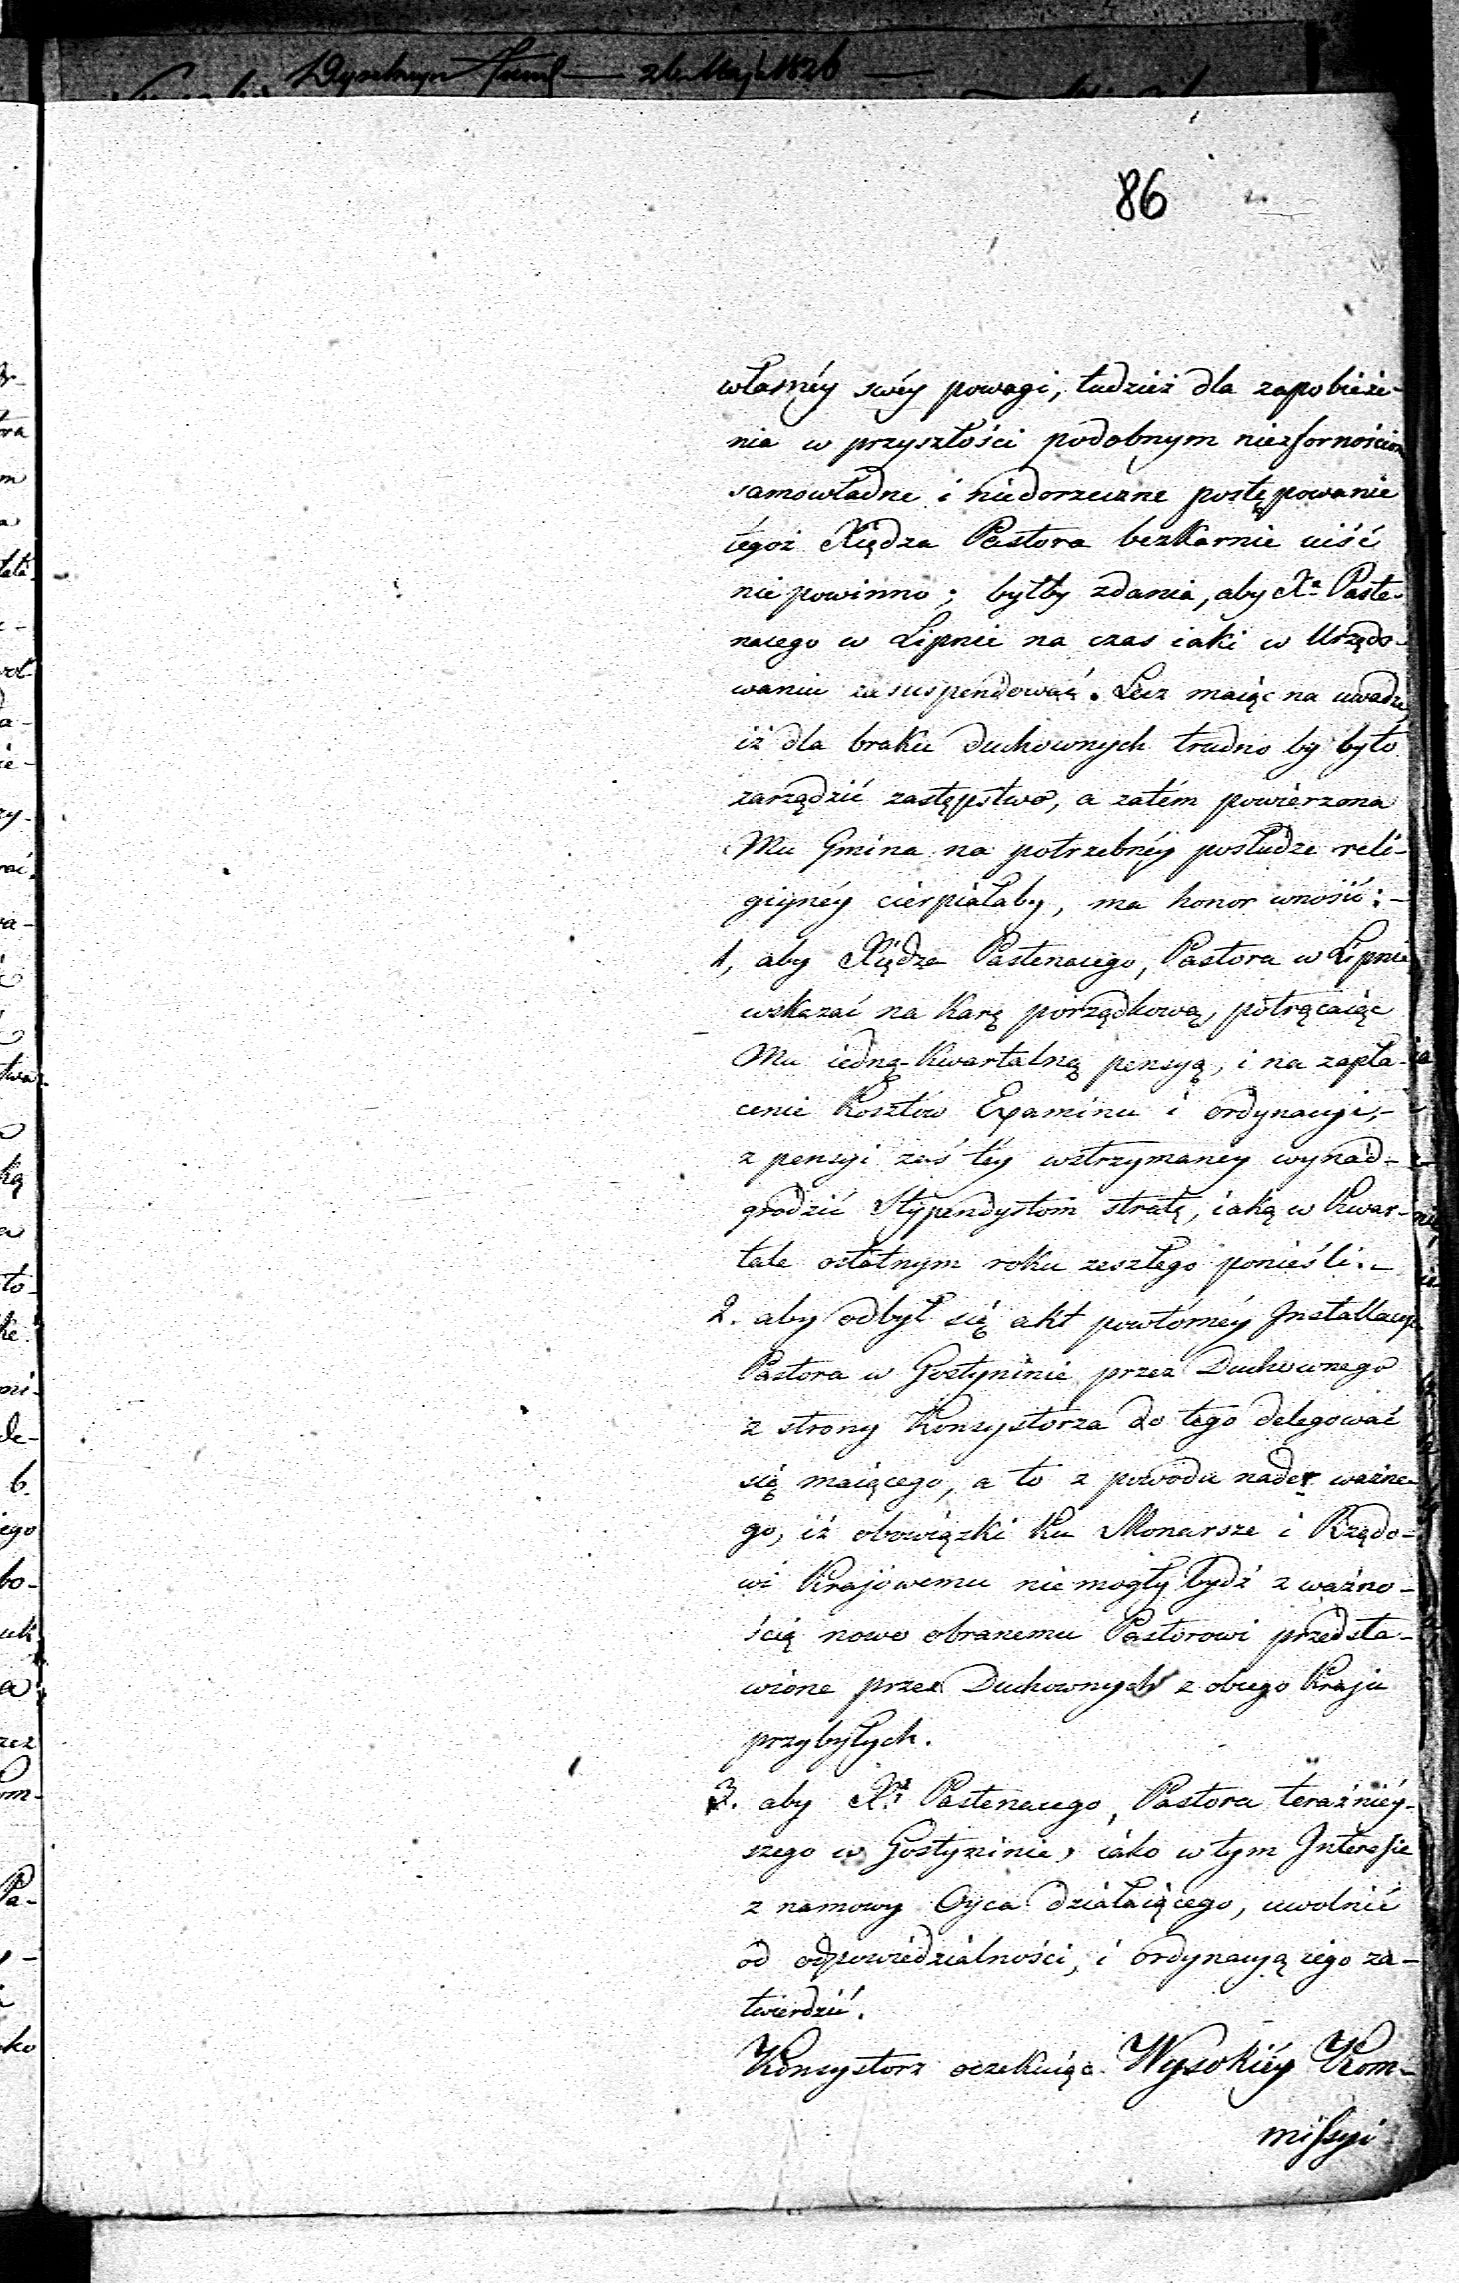 z 6 Maja 1826
86
własnéy swéy powagi, tudzież dla zapobieże-
nia w przyszłości podobnym niesfornościom
samowładne i niedorzeczne postępowanie
tegoż Xiędza Pastora bezkarnie uiść
nie powinno; byłby zdania, aby Xa Paste-
naciego w Lipnie na czas iaki w Urzędo-
waniu zasuspendować. Lecz maiąc na uwadze,
iż dla braku duchownych trudno by było
zarządzić zastępstwo, a zatém powierzona
Mu Gmina na potrzebnéy posłudze reli-
giynéy cierpiałaby, ma honor wnosić: -
1, aby Xiędza Pastenaciego, Pastora w Lipnie
wskazać na karę porządkową, potrącaiąc
Mu iedną kwartalną pensyą, i na zapła-
cenie kosztów Examinu i ordynacyi, -
z pensyi zaś téy wstrzymaney wynad-
grodzić Stypendystom stratę, iaką w kwar-
tale ostatnym roku zeszłego ponieśli. -
2. aby odbył się akt powtórnéy Installacyi
Pastora w Gostyninie przez Duchownego
z strony Konsystorza do tego delegować
się maiącego, a to z powodu nader ważne-
go, iż obowiązki ku Monarsze i Rządo-
wi Krajowemu nie mogły bydź z ważno-
ścią nowo obranemu Pastorowi przedsta-
wione przez Duchownych z obcego Kraju
przybyłych.
3. aby Xa Pastenaciego, Pastora teraźniéy-
szego w Gostyninie, iako w tym Interesie
z namowy Oyca działaiącego, uwolnić
od odpowiedzialności, i ordynacyą iego za-
twierdzić.
Konsystorz oczekuiąc Wysokiéy Kom-
missyi